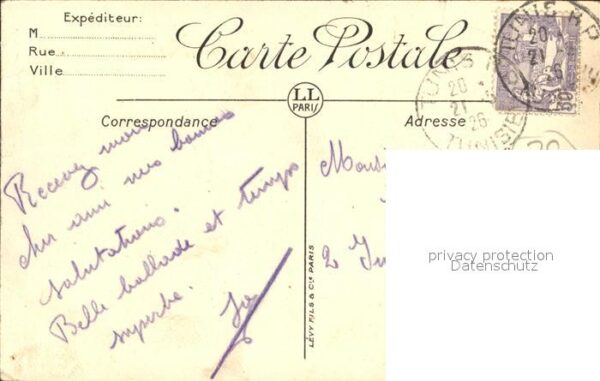 Expéditeur:
M
Rue
Ville
Carte Postale
TUNIS R.P
20
21
26
TUNIS
20
21
26
TUNISIE
LL
PARIS
Correspondance
Adresse
Recevez mon
cher ami mes bonnes
salutations.
Belle ballade et temps
superbe.
Monsi
2
LÉVY FILS & Cie PARIS
privacy protection
Datenschutz